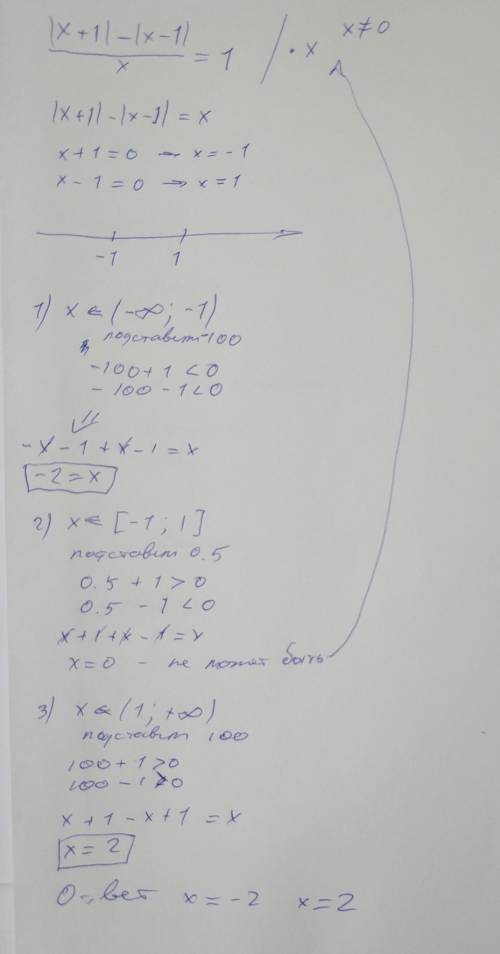 |x+1|-|x-1| / x = 1 / · x   x≠0
|x+1|-|x-1| = x
x+1=0 → x=-1
x-1=0 → x=1
-1   1
1) x ∈ (-∞; -1)
подставим -100
-100+1 <0
-100-1<0
-x-1+x-1=x
-2=x
2) x ∈ [-1; 1]
подставим 0.5
0.5+1>0
0.5-1<0
x+1+x-1=x
x=0 - не может быть
3) x ∈ (1; +∞)
подставим 100
100+1>0
100-1>0
x+1-x+1=x
x=2
Ответ x=-2 x=2